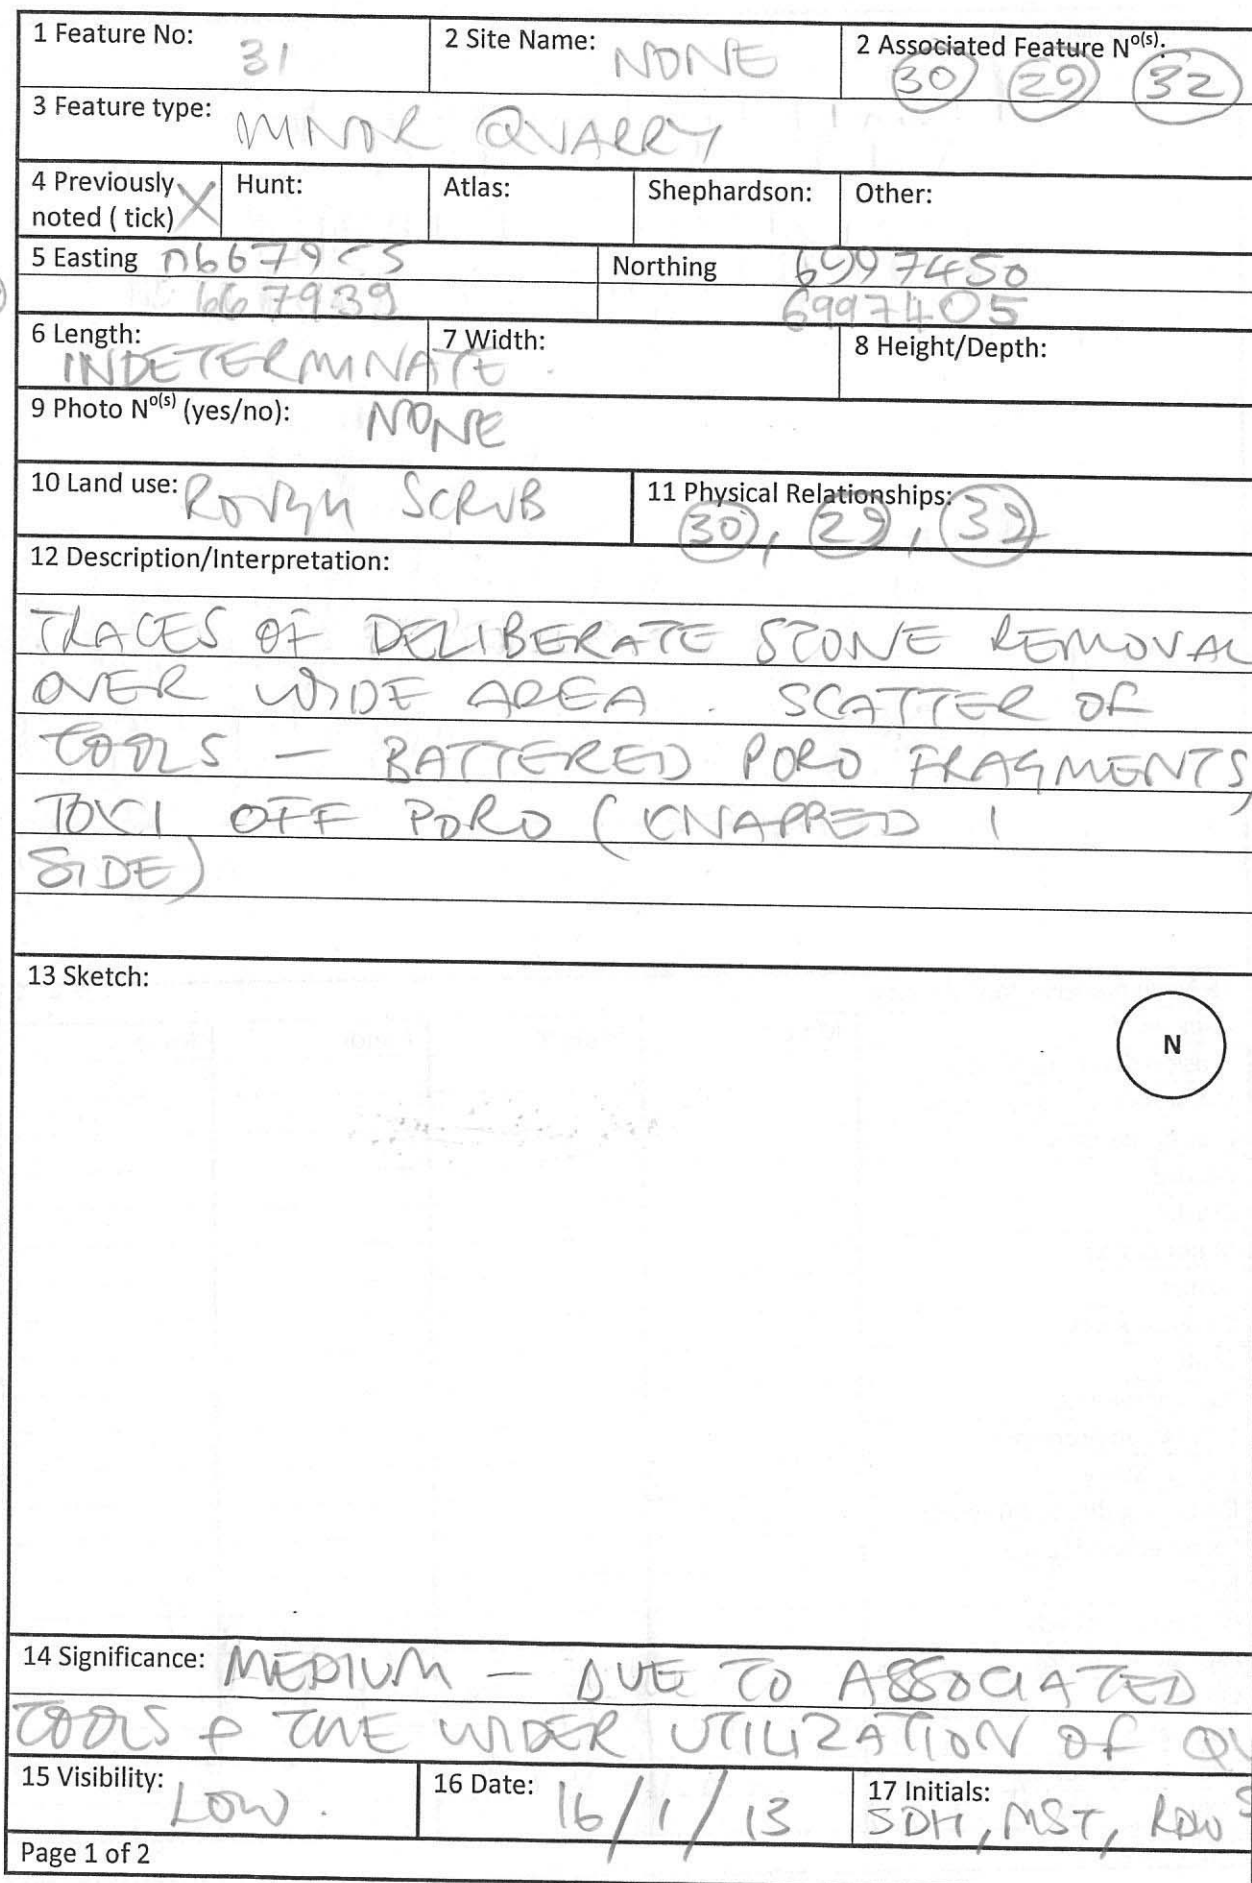 1 Feature No: 31 2 Site Name: NONE 2 Associated Feature No(s): 30 29 32
3 Feature type: MINOR QUARRY
4 Previously noted ( tick) X Hunt: Atlas: Shephardson: Other:
5 Easting Northing 6997450
667939 6997405
6 Length: INDETERMINATE. 7 Width: 8 Height/Depth:
9 Photo No(s) (yes/no): NONE
10 Land use: ROUGH SCRUB 11 Physical Relationships: 30, 29, 32
12 Description/Interpretation:
TRACES OF DELIBERATE STONE REMOVAL
OVER WIDE AREA. SCATTER OF
TOOLS — BATTERED PORO FRAGMENTS,
TOKI OFF PORO (KNAPPED 1
SIDE)
13 Sketch:
N
14 Significance: MEDIUM — DUE TO ASSOCIATED
TOOLS + THE WIDER UTILIZATION OF
15 Visibility: LOW. 16 Date: 16/1/13 17 Initials: SDH, MST, RDW
Page 1 of 2